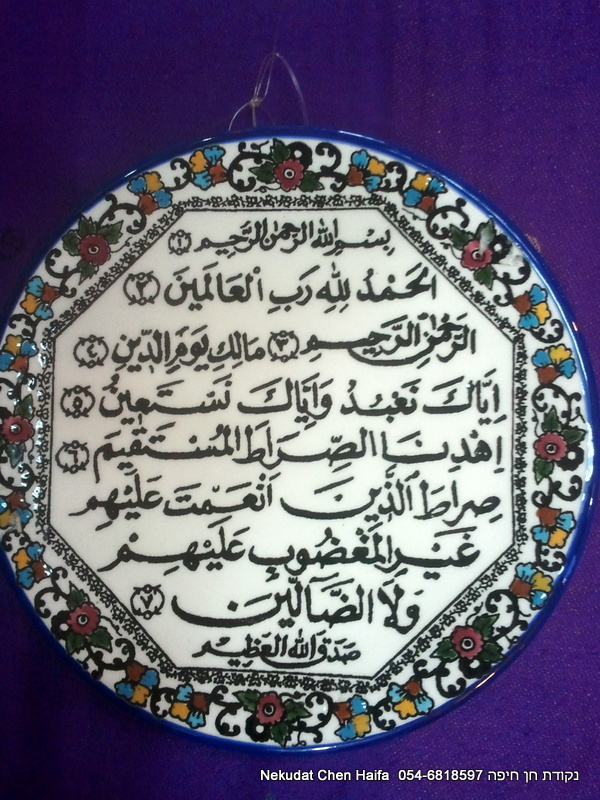 بِسْمِ اللهِ الرَّحْمٰنِ الرَّحِيمِ ﴿١﴾
الحَمْدُ لِلّٰهِ رَبِّ العَالَمِينَ ﴿٢﴾
الرَّحْمٰنِ الرَّحِيمِ ﴿٣﴾ مَالِكِ يَوْمِ الدِّينِ ﴿٤﴾
اِيَّاكَ نَعْبُدُ وَاِيَّاكَ نَسْتَعِينُ ﴿٥﴾
اِهْدِنَا الصِّرَاطَ المُسْتَقِيمَ ﴿٦﴾
صِرَاطَ الَّذِينَ اَنْعَمْتَ عَلَيْهِم
غَيْرِ المَغْضُوبِ عَلَيْهِمْ
وَلَا الضَّالِّينَ ﴿٧﴾
صَدَقَ اللهُ العَظِيمُ
Nekudat Chen Haifa 054-6818597 נקודת חן חיפה